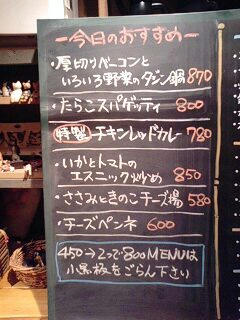 ー今日のおすすめー
・厚切りベーコンと
いろいろ野菜のタジン鍋 870
・たらこスパゲッティ 800
特製 チキンレッドカレー 780
・いかとトマトの
エスニック炒め 850
・ささみときのこチーズ湯 580
・チーズペンネ 600
450→2つで800 MENUは
小黒板をごらん下さい